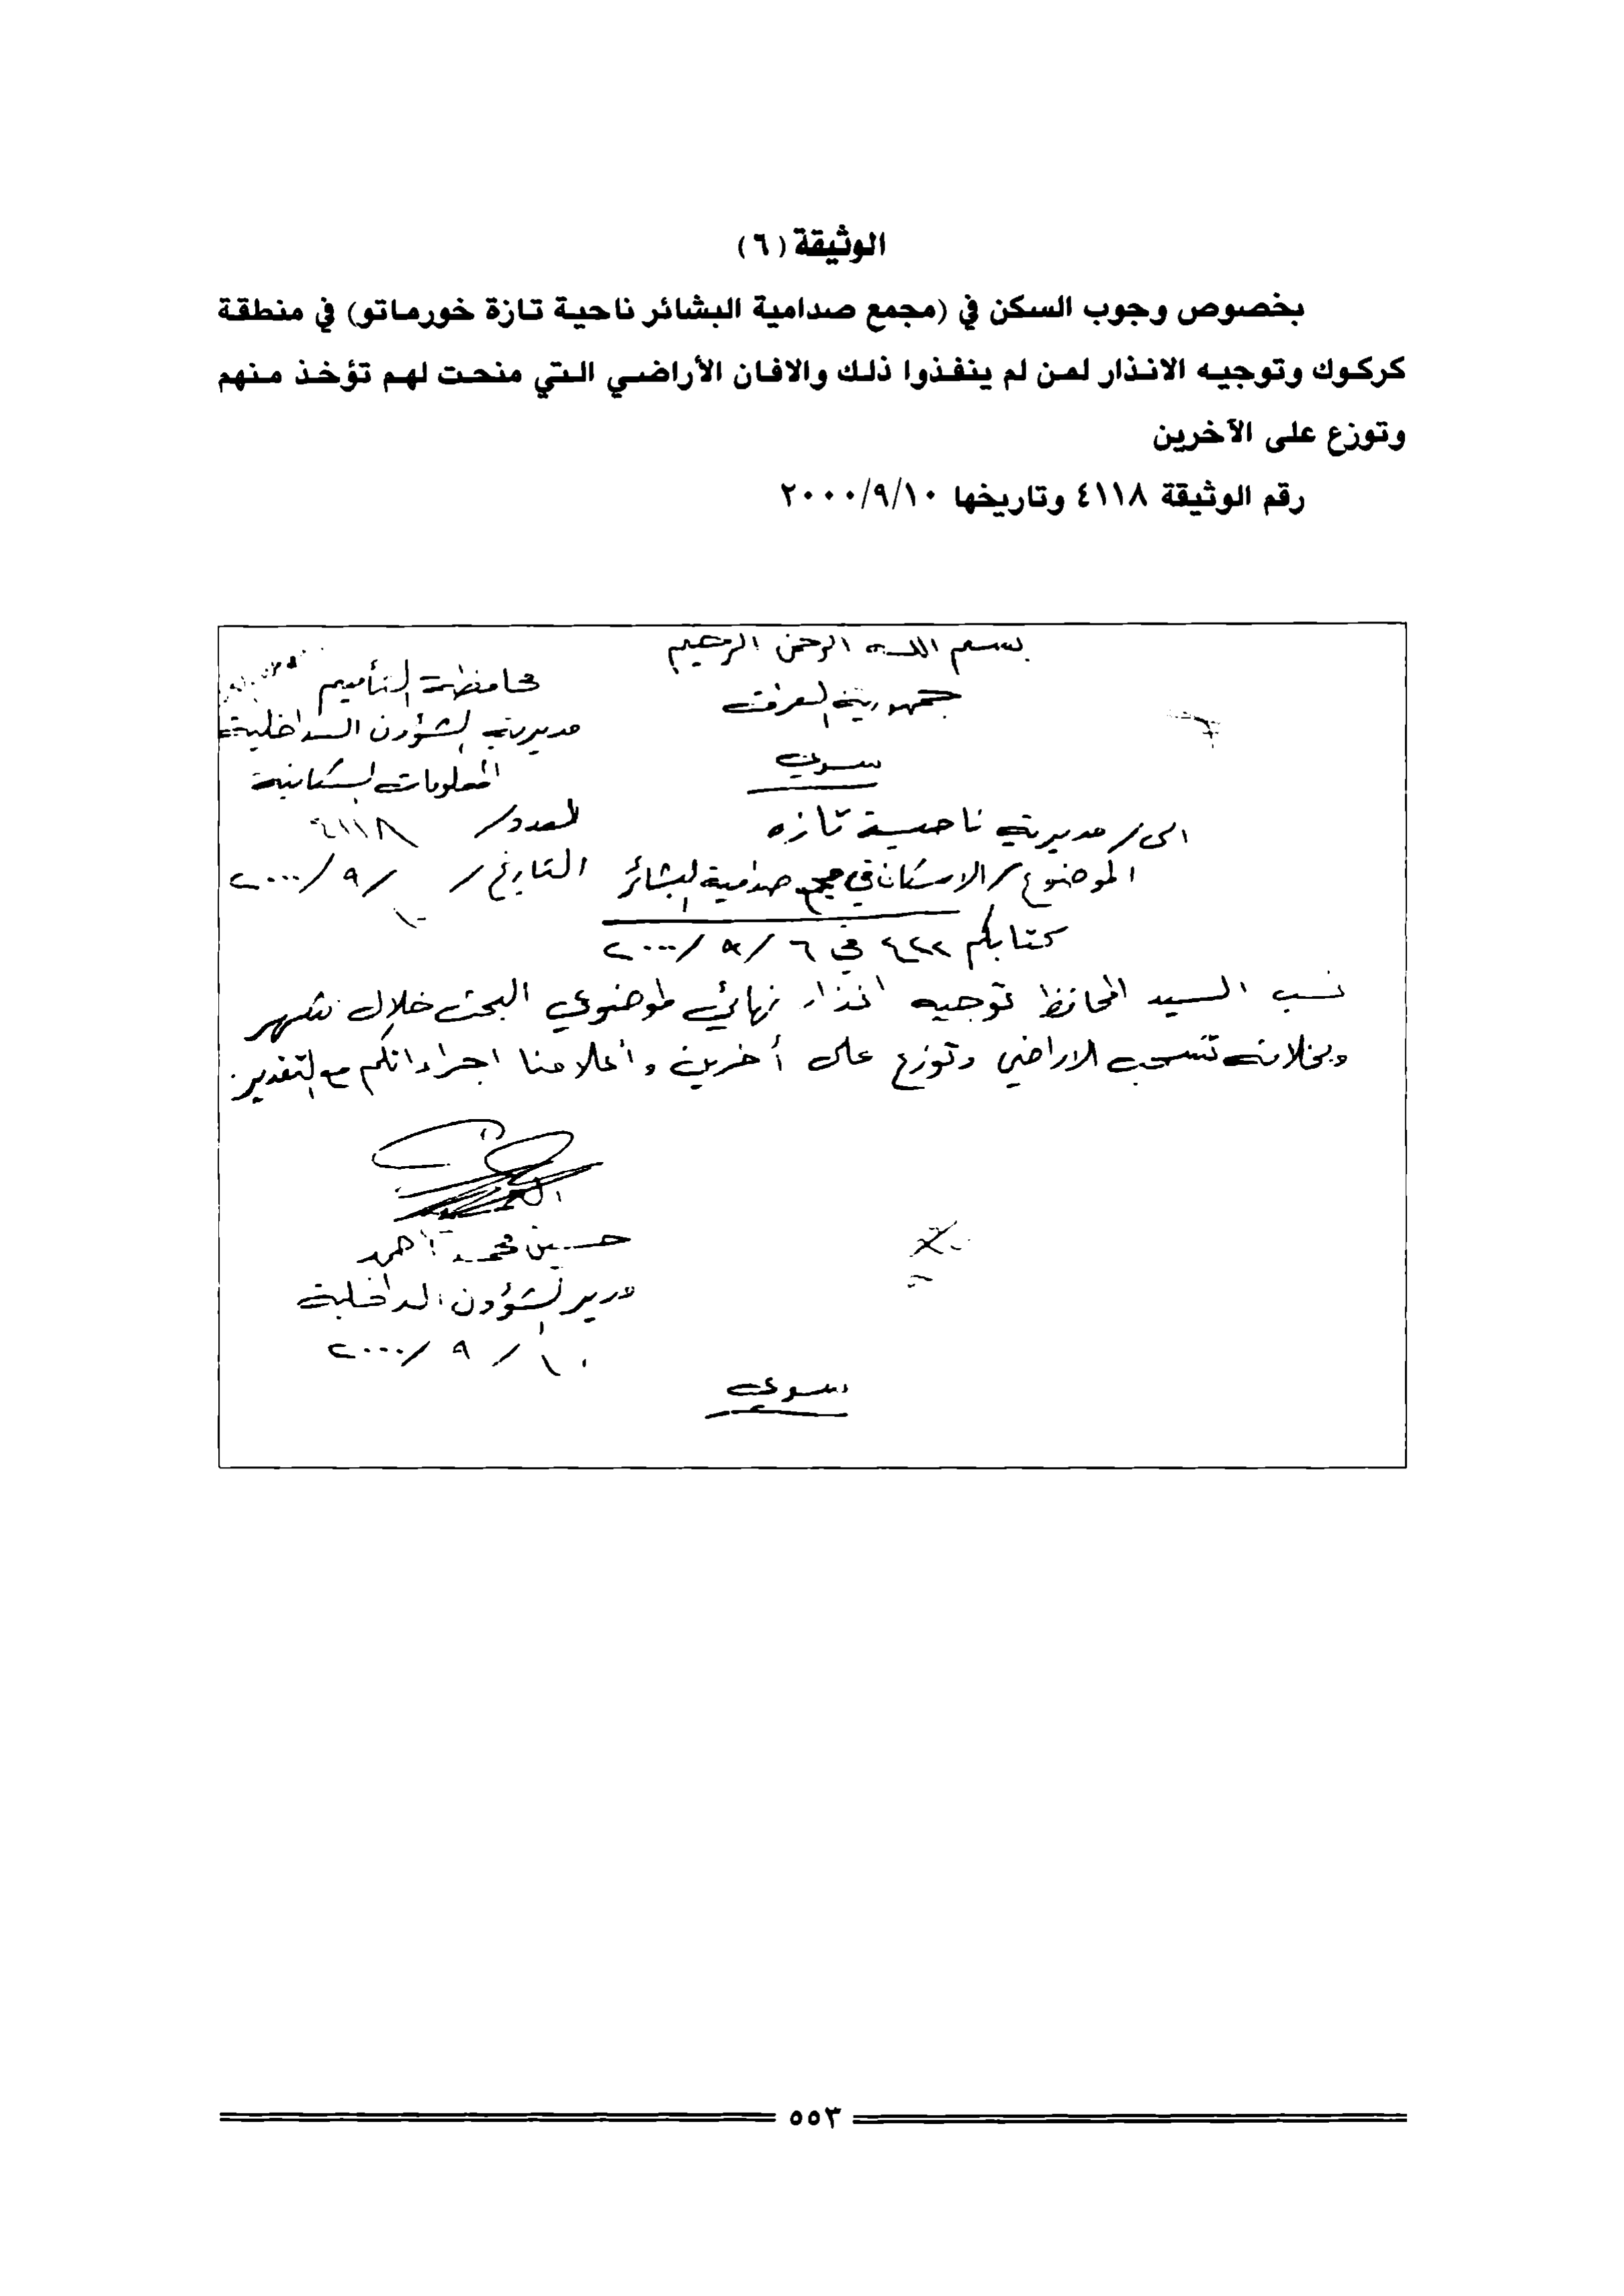 الوثيقة (٦)
بخصوص وجوب السكن في (مجمع صدامية البشائر ناحية تازة خورماتو) في منطقة
كركوك وتوجيه الانذار لمن لم ينفذوا ذلك والافان الأراضي التي منحت لهم تؤخذ منهم
وتوزع على الآخرين
رقم الوثيقة ٤١١٨ وتاريخها ٢٠٠٠/٩/١٠
بسم الله الرحمن الرحيم
جمهورية العراق
محافظة التأميم
مديرية الشؤون الداخلية
المعلومات السكانية
سري
العدد/ ٤١١٨
التاريخ/ ١٠/ ٩/ ٢٠٠٠
الى/ مديرية ناحية تازه
الموضوع/ الاسكان في مجمع صدامية البشائر
كتابكم ٤٢٢ في ٦/ ٨/ ٢٠٠٠
نسب السيد المحافظ توجيه انذار نهائي لموضوعي البحث خلال شهر
وبخلافه تسحب الاراضي وتوزع على أخرين وأعلامنا اجراءاتكم مع التقدير
حسين محمد احمد
مدير الشؤون الداخلية
١٠/ ٩/ ٢٠٠٠
سري
٥٥٣